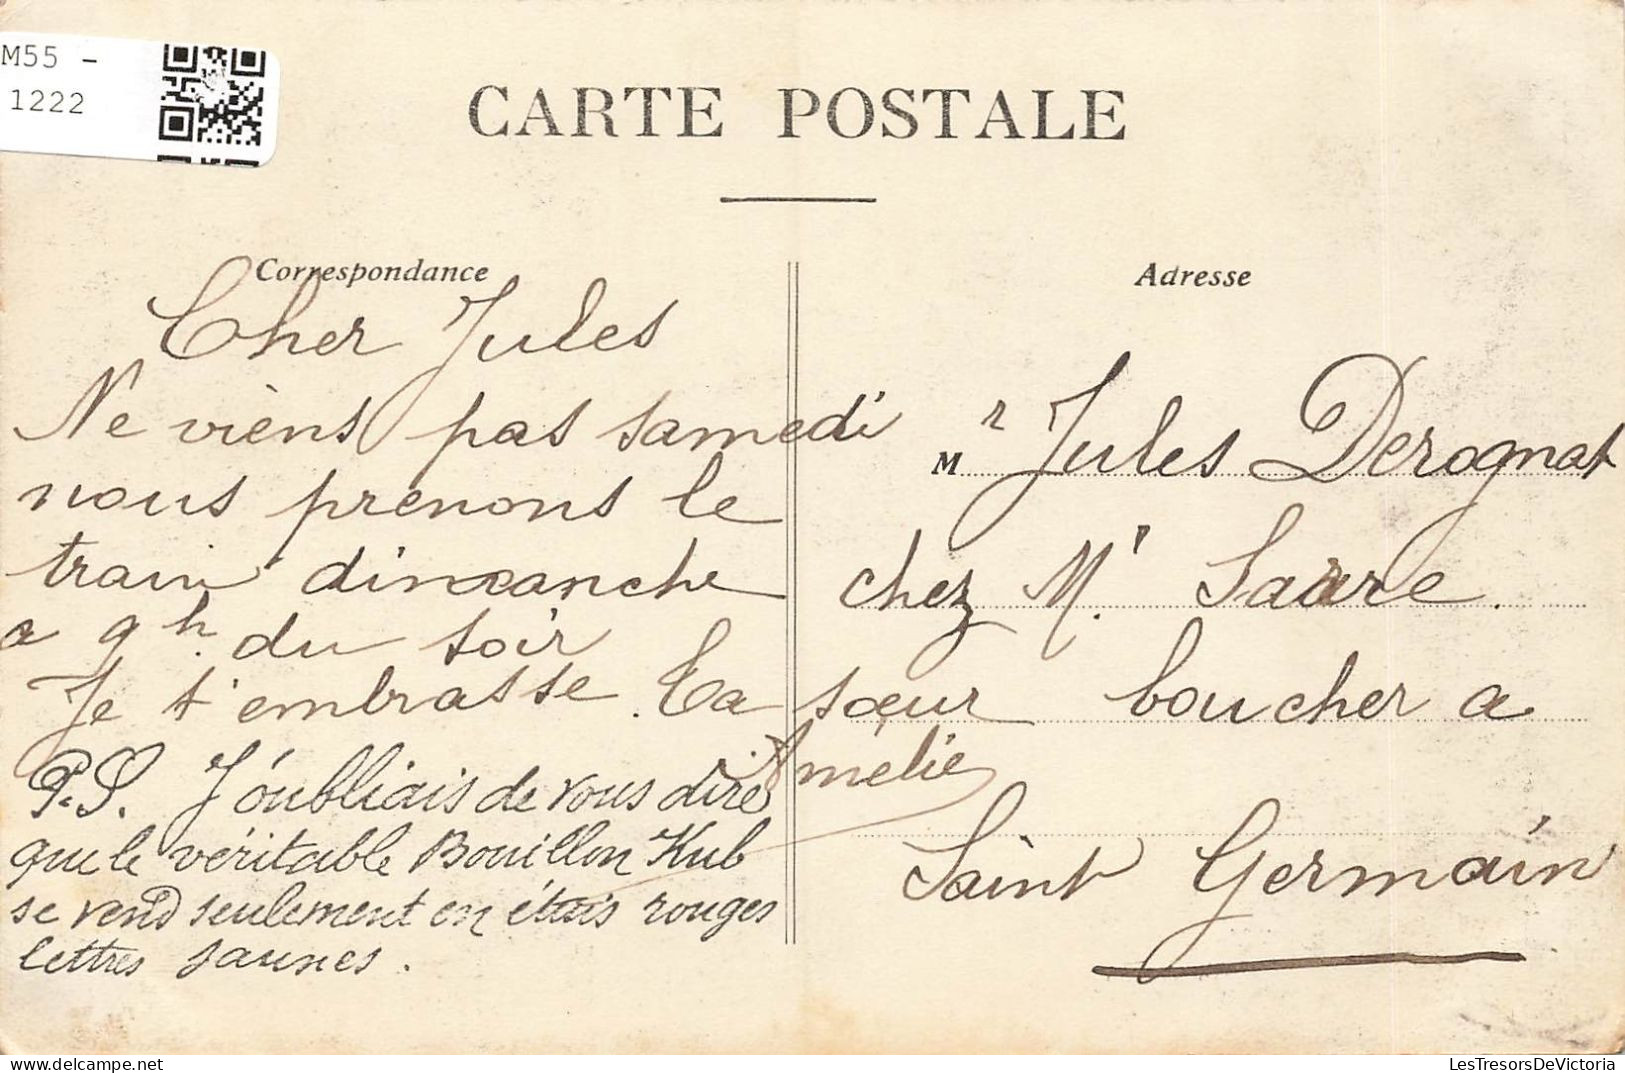 M55 -
1222
CARTE POSTALE
Correspondance
Cher Jules
Ne viens pas samedi
nous prenons le
train dimanche
a 9h. du soir
Je t'embrasse. Ta sœur
Amelie
P.S. J'oubliais de vous dire
que le véritable Bouillon Kub
se vend seulement en étuis rouges
lettres jaunes.
Adresse
Mr Jules Derognat
chez Mr.
boucher a
Saint Germain
LesTresorsDeVictoria.com